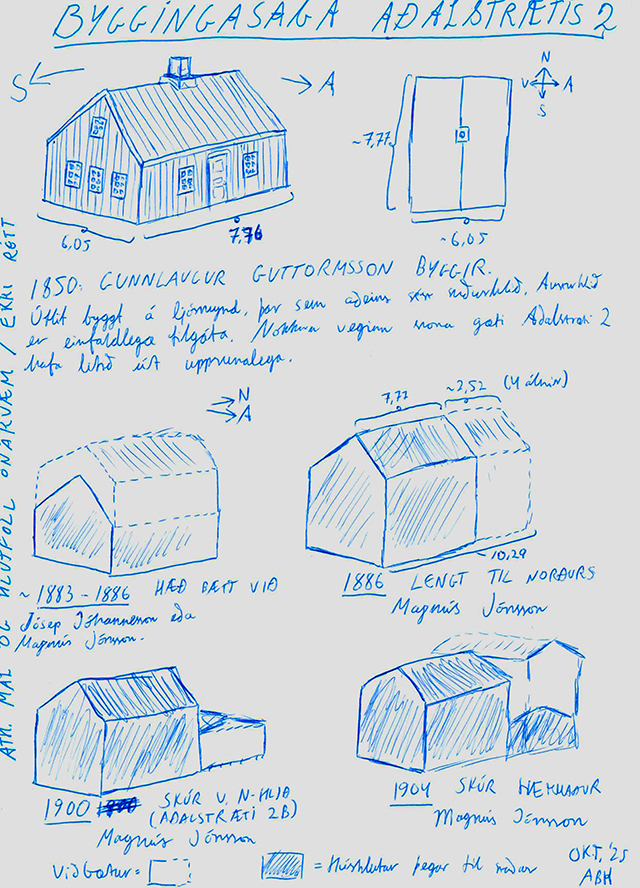 BYGGINGASAGA AÐALSTRÆTIS 2
S
A
N
V A
S
~7,77
6,05
7,76
~6,05
1850: GUNNLAUGUR GUTTORMSSON BYGGIR.
Útlit byggt á ljósmynd, þar sem aðeins sést suðurhlið. Austurhlið
er einfaldlega tilgáta. Nokkurn veginn svona gæti Aðalstræti 2
hafa litið út upprunalega.
ATH. MÁL OG HLUTFÖLL ÓNÁKVÆM / EKKI RÉTT
N
A
~ 1883 - 1886 HÆÐ BÆTT VIÐ
Jósep Jóhannesson eða
Magnús Jónsson.
7,77
~2,52 (4 álnir)
10,29
1886 LENGT TIL NORÐURS
Magnús Jónsson
1900 SKÚR V. N-HLIÐ
(AÐALSTRÆTI 2B)
Magnús Jónsson
1904 SKÚR HÆKKAÐUR
Magnús Jónsson
Viðbætur =
= Húshlutar þegar til staðar
OKT, '25
ABH